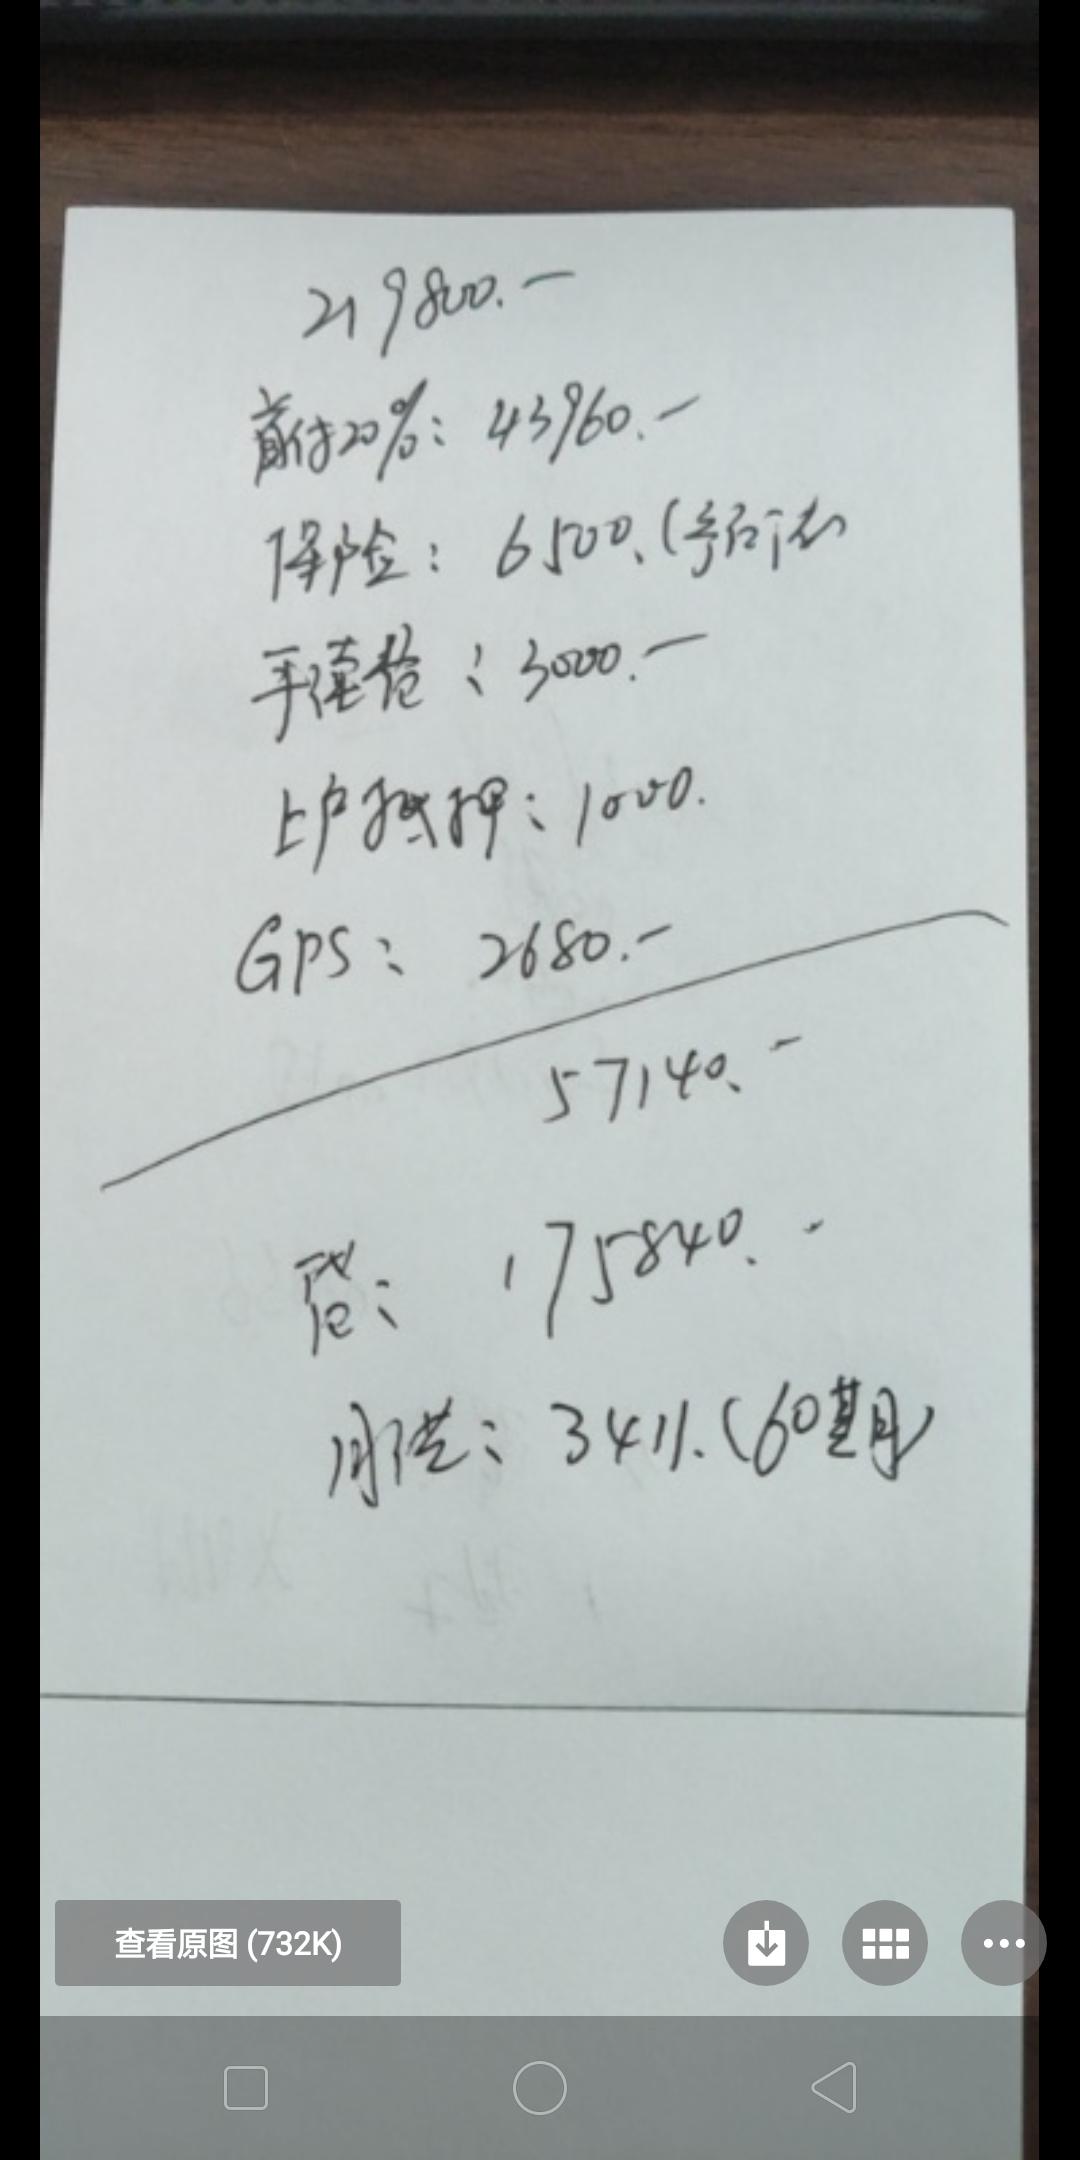 219800.—
首付20%: 43960.—
保险: 6500.(
手续费: 3000.—
上户抵押: 1000.
GPS: 2680.—
57140.-
贷: 175840.-
月供: 3411.(60期)
查看原图 (732K)